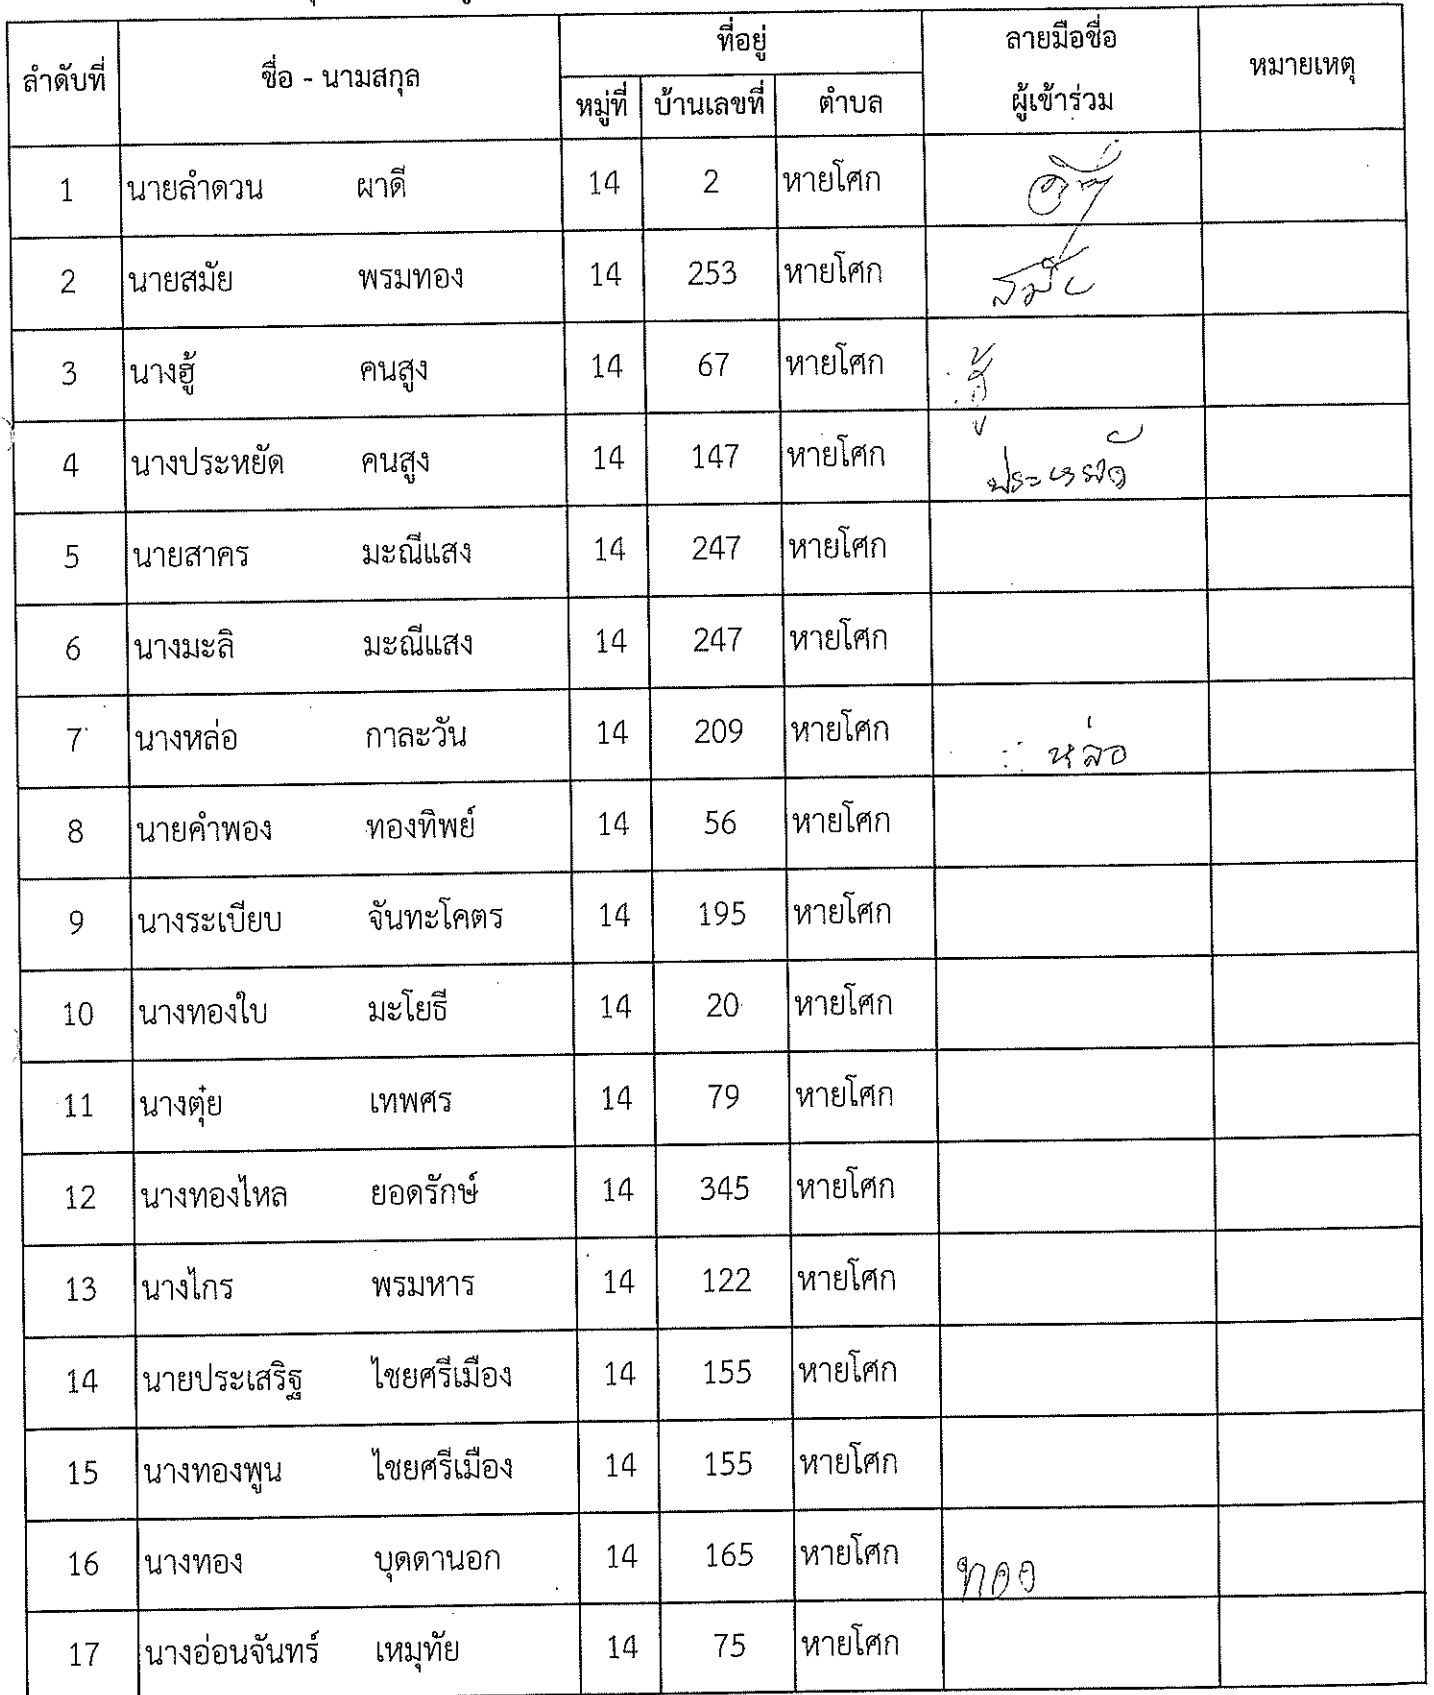 ลำดับที่ ชื่อ - นามสกุล ที่อยู่ ลายมือชื่อ หมายเหตุ
หมู่ที่ บ้านเลขที่ ตำบล ผู้เข้าร่วม
1 นายลำดวน ผาดี 14 2 หายโศก
2 นายสมัย พรมทอง 14 253 หายโศก สมัย
3 นางฮู้ คนสูง 14 67 หายโศก ฮู้
4 นางประหยัด คนสูง 14 147 หายโศก ประหยัด
5 นายสาคร มะณีแสง 14 247 หายโศก
6 นางมะลิ มะณีแสง 14 247 หายโศก
7 นางหล่อ กาละวัน 14 209 หายโศก หล่อ
8 นายคำพอง ทองทิพย์ 14 56 หายโศก
9 นางระเบียบ จันทะโคตร 14 195 หายโศก
10 นางทองใบ มะโยธี 14 20 หายโศก
11 นางตุ๋ย เทพศร 14 79 หายโศก
12 นางทองไหล ยอดรักษ์ 14 345 หายโศก
13 นางไกร พรมหาร 14 122 หายโศก
14 นายประเสริฐ ไชยศรีเมือง 14 155 หายโศก
15 นางทองพูน ไชยศรีเมือง 14 155 หายโศก
16 นางทอง บุดดานอก 14 165 หายโศก ทอง
17 นางอ่อนจันทร์ เหมุทัย 14 75 หายโศก